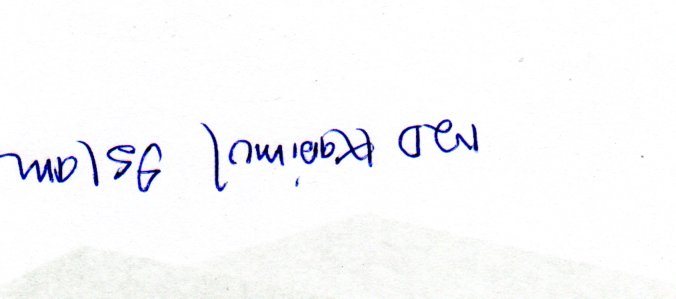 MD Karimul Islam